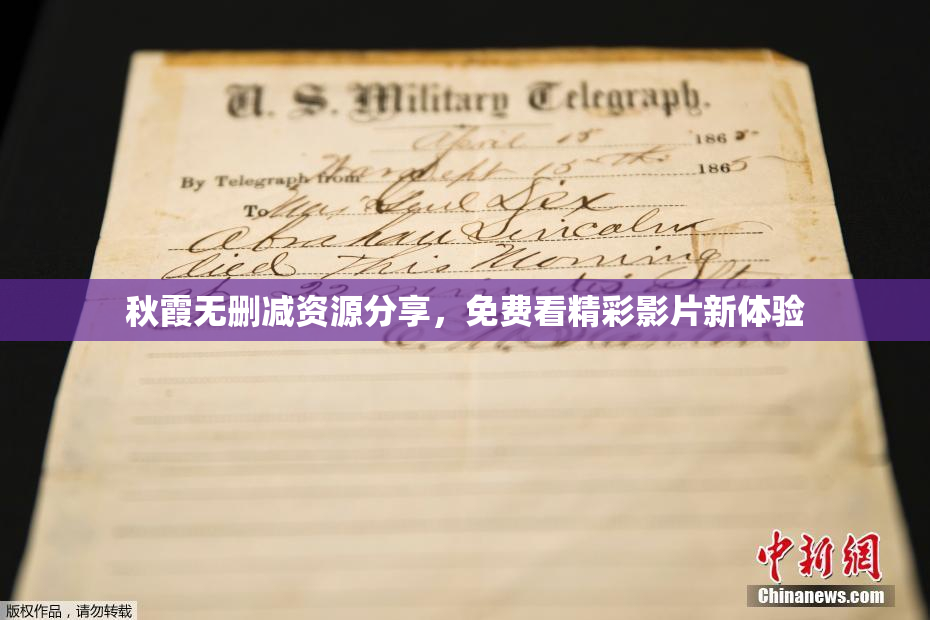 U. S. Military Telegraph.
April 15 1865
By Telegraph from War Dept 15th 1865
To Maj Genl Dix
Abraham Lincoln
died This Morning
22 minutes after
秋霞无删减资源分享，免费看精彩影片新体验
中新网
Chinanews.com
版权作品，请勿转载